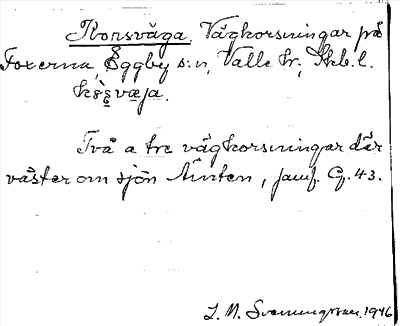 Korsväga. Vägkorsningar på
Foxerna, Eggby s:n, Valle hd, Skb. l.
Två a tre vägkorsningar där
väster om sjön Ämten, jämf. G. 43.
S. M. Svenungsson 1946